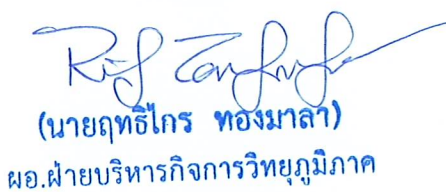 (นายฤทธิไกร ทองมาลา)
ผอ.ฝ่ายบริหารกิจการวิทยุภูมิภาค